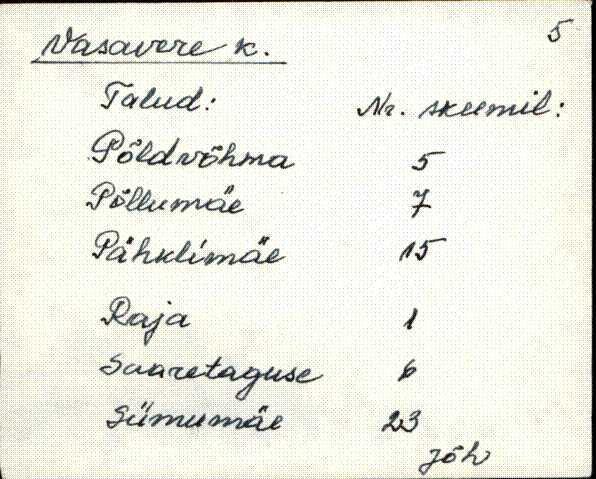 5
Vasavere k.
Talud: Nr. skeemil:
Põldvõhma 5
Põllumäe 7
Pähklimäe 15
Raja 1
Saaretaguse 6
Siimumäe 23
Jõh